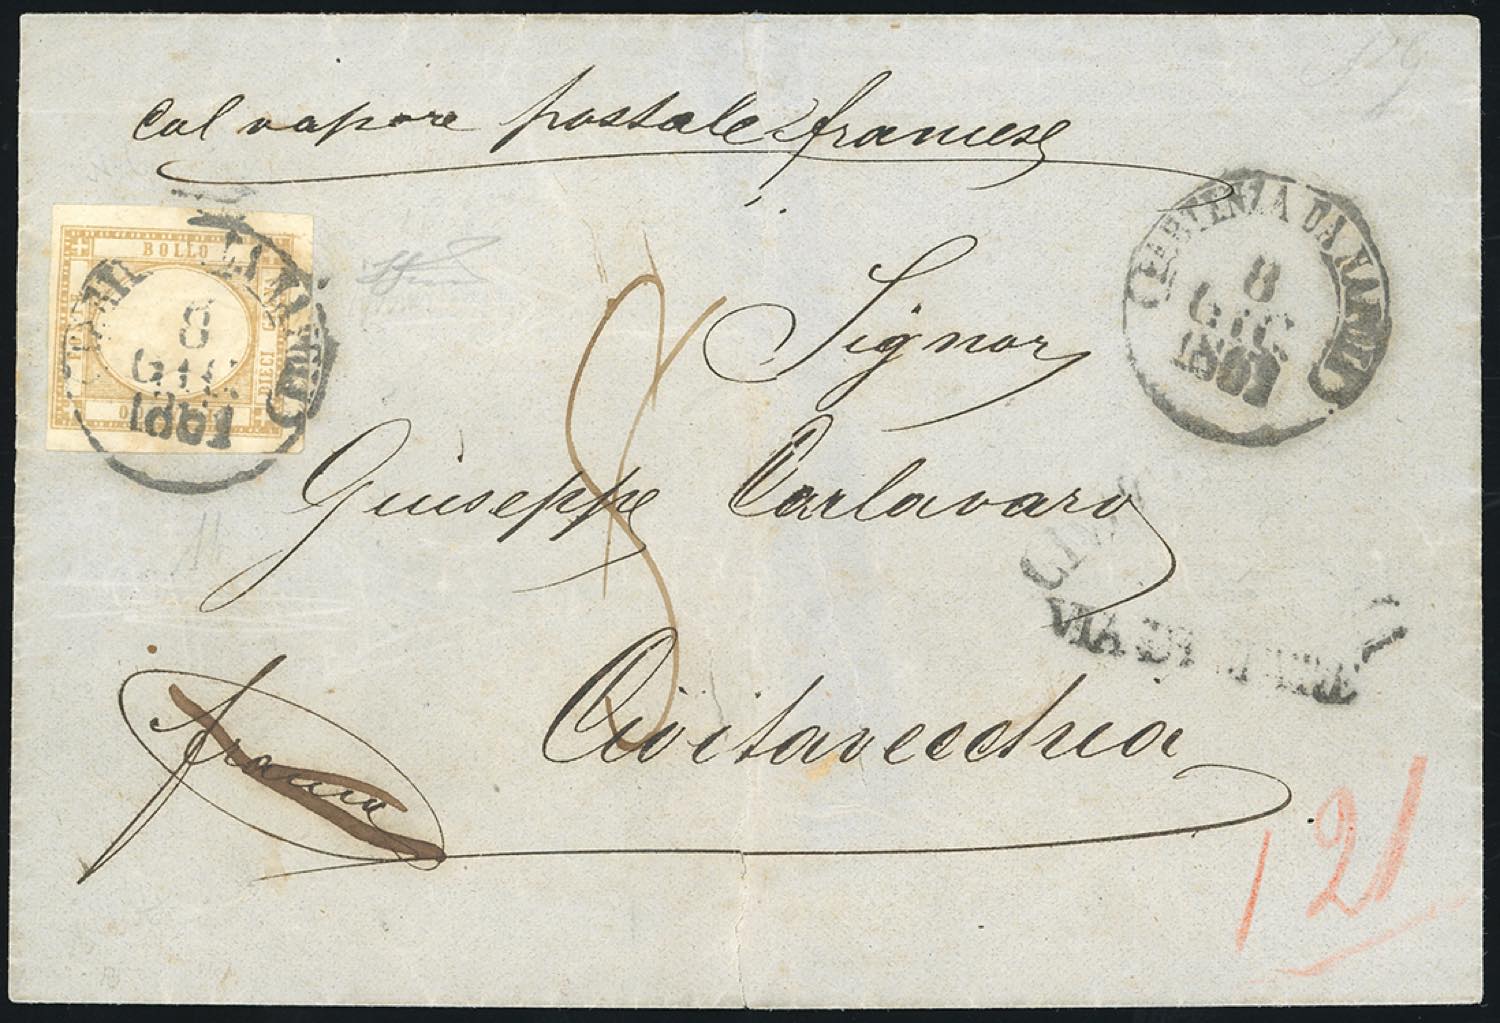 col vapore postale francese
BOLLO
DIECI
8
GIU
1861
PARTENZA DA NAPOLI
8
GIU
1861
8
Signor
Giuseppe Carlavaro
VIA DI MARE
Civitavecchia
franca
121